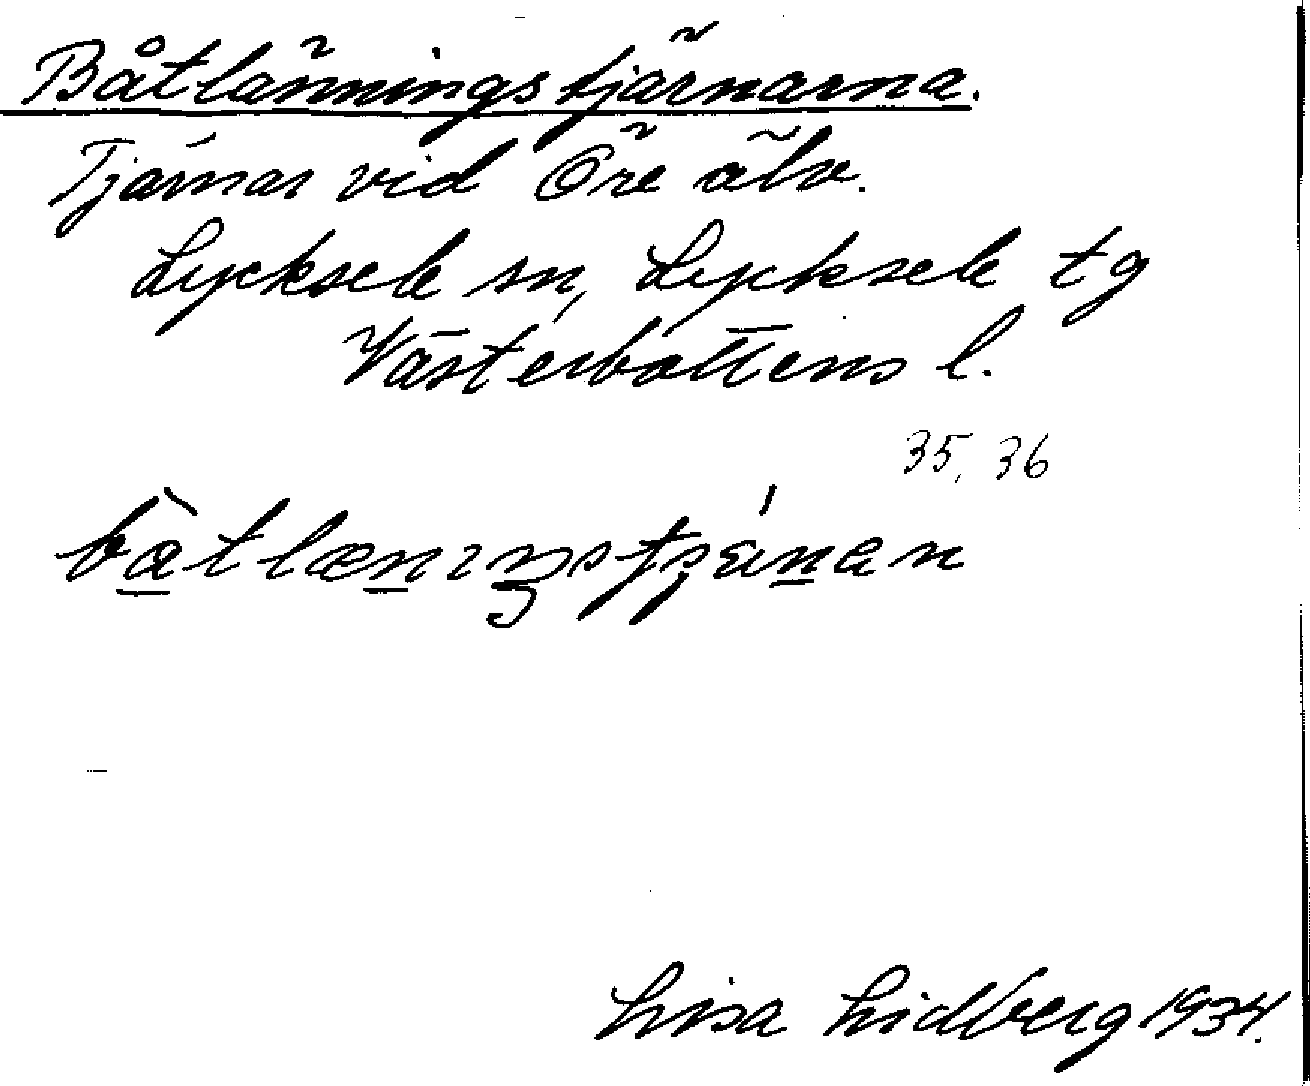 Båtlänningstjärnarna.
Tjärnar vid Öre älv.
Lycksele sn, Lycksele tg
Västerbottens l.
35, 36
Lisa Lidberg 1934.